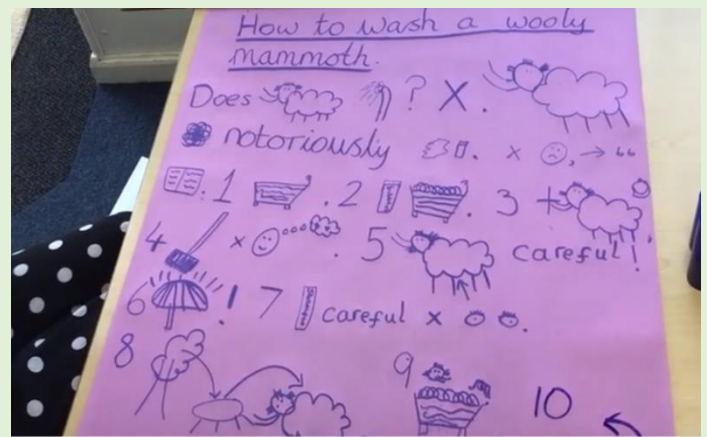 How to wash a wooly
mammoth.
Does ? X.
notoriously . x , → "
. 1 . 2 . 3 +
4 x . 5 careful!
6 ! 7 careful x .
8 9 10